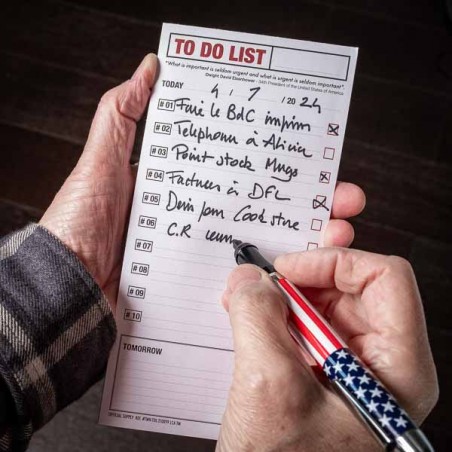 TO DO LIST
"What is important is seldom urgent and what is urgent is seldom important".
Dwight David Eisenhower - 34th President of the United States of America
TODAY 4 / 7 / 2024
#01 Faire le BdC imprim
#02 Telephone à Alicia
#03 Point stock Mugs
#04 Facture à DFL
#05 Devis pour Cook store
#06 C.R
#07
#08
#09
#10
TOMORROW